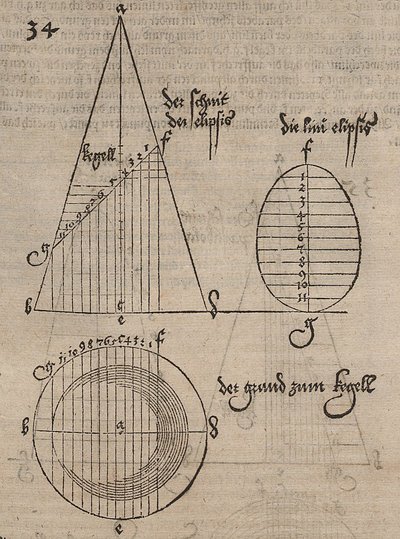 34
a
der schnit
der elipsis
f
kegell
1 2 3 4 5 6 7 8 9 10 11
g
b
c
e
d
die lini elipsis
f
1
2
3
4
5
6
7
8
9
10
11
g
g 11 10 9 8 7 6 5 c 4 3 2 1 f
b
a
d
e
der grund zum kegell